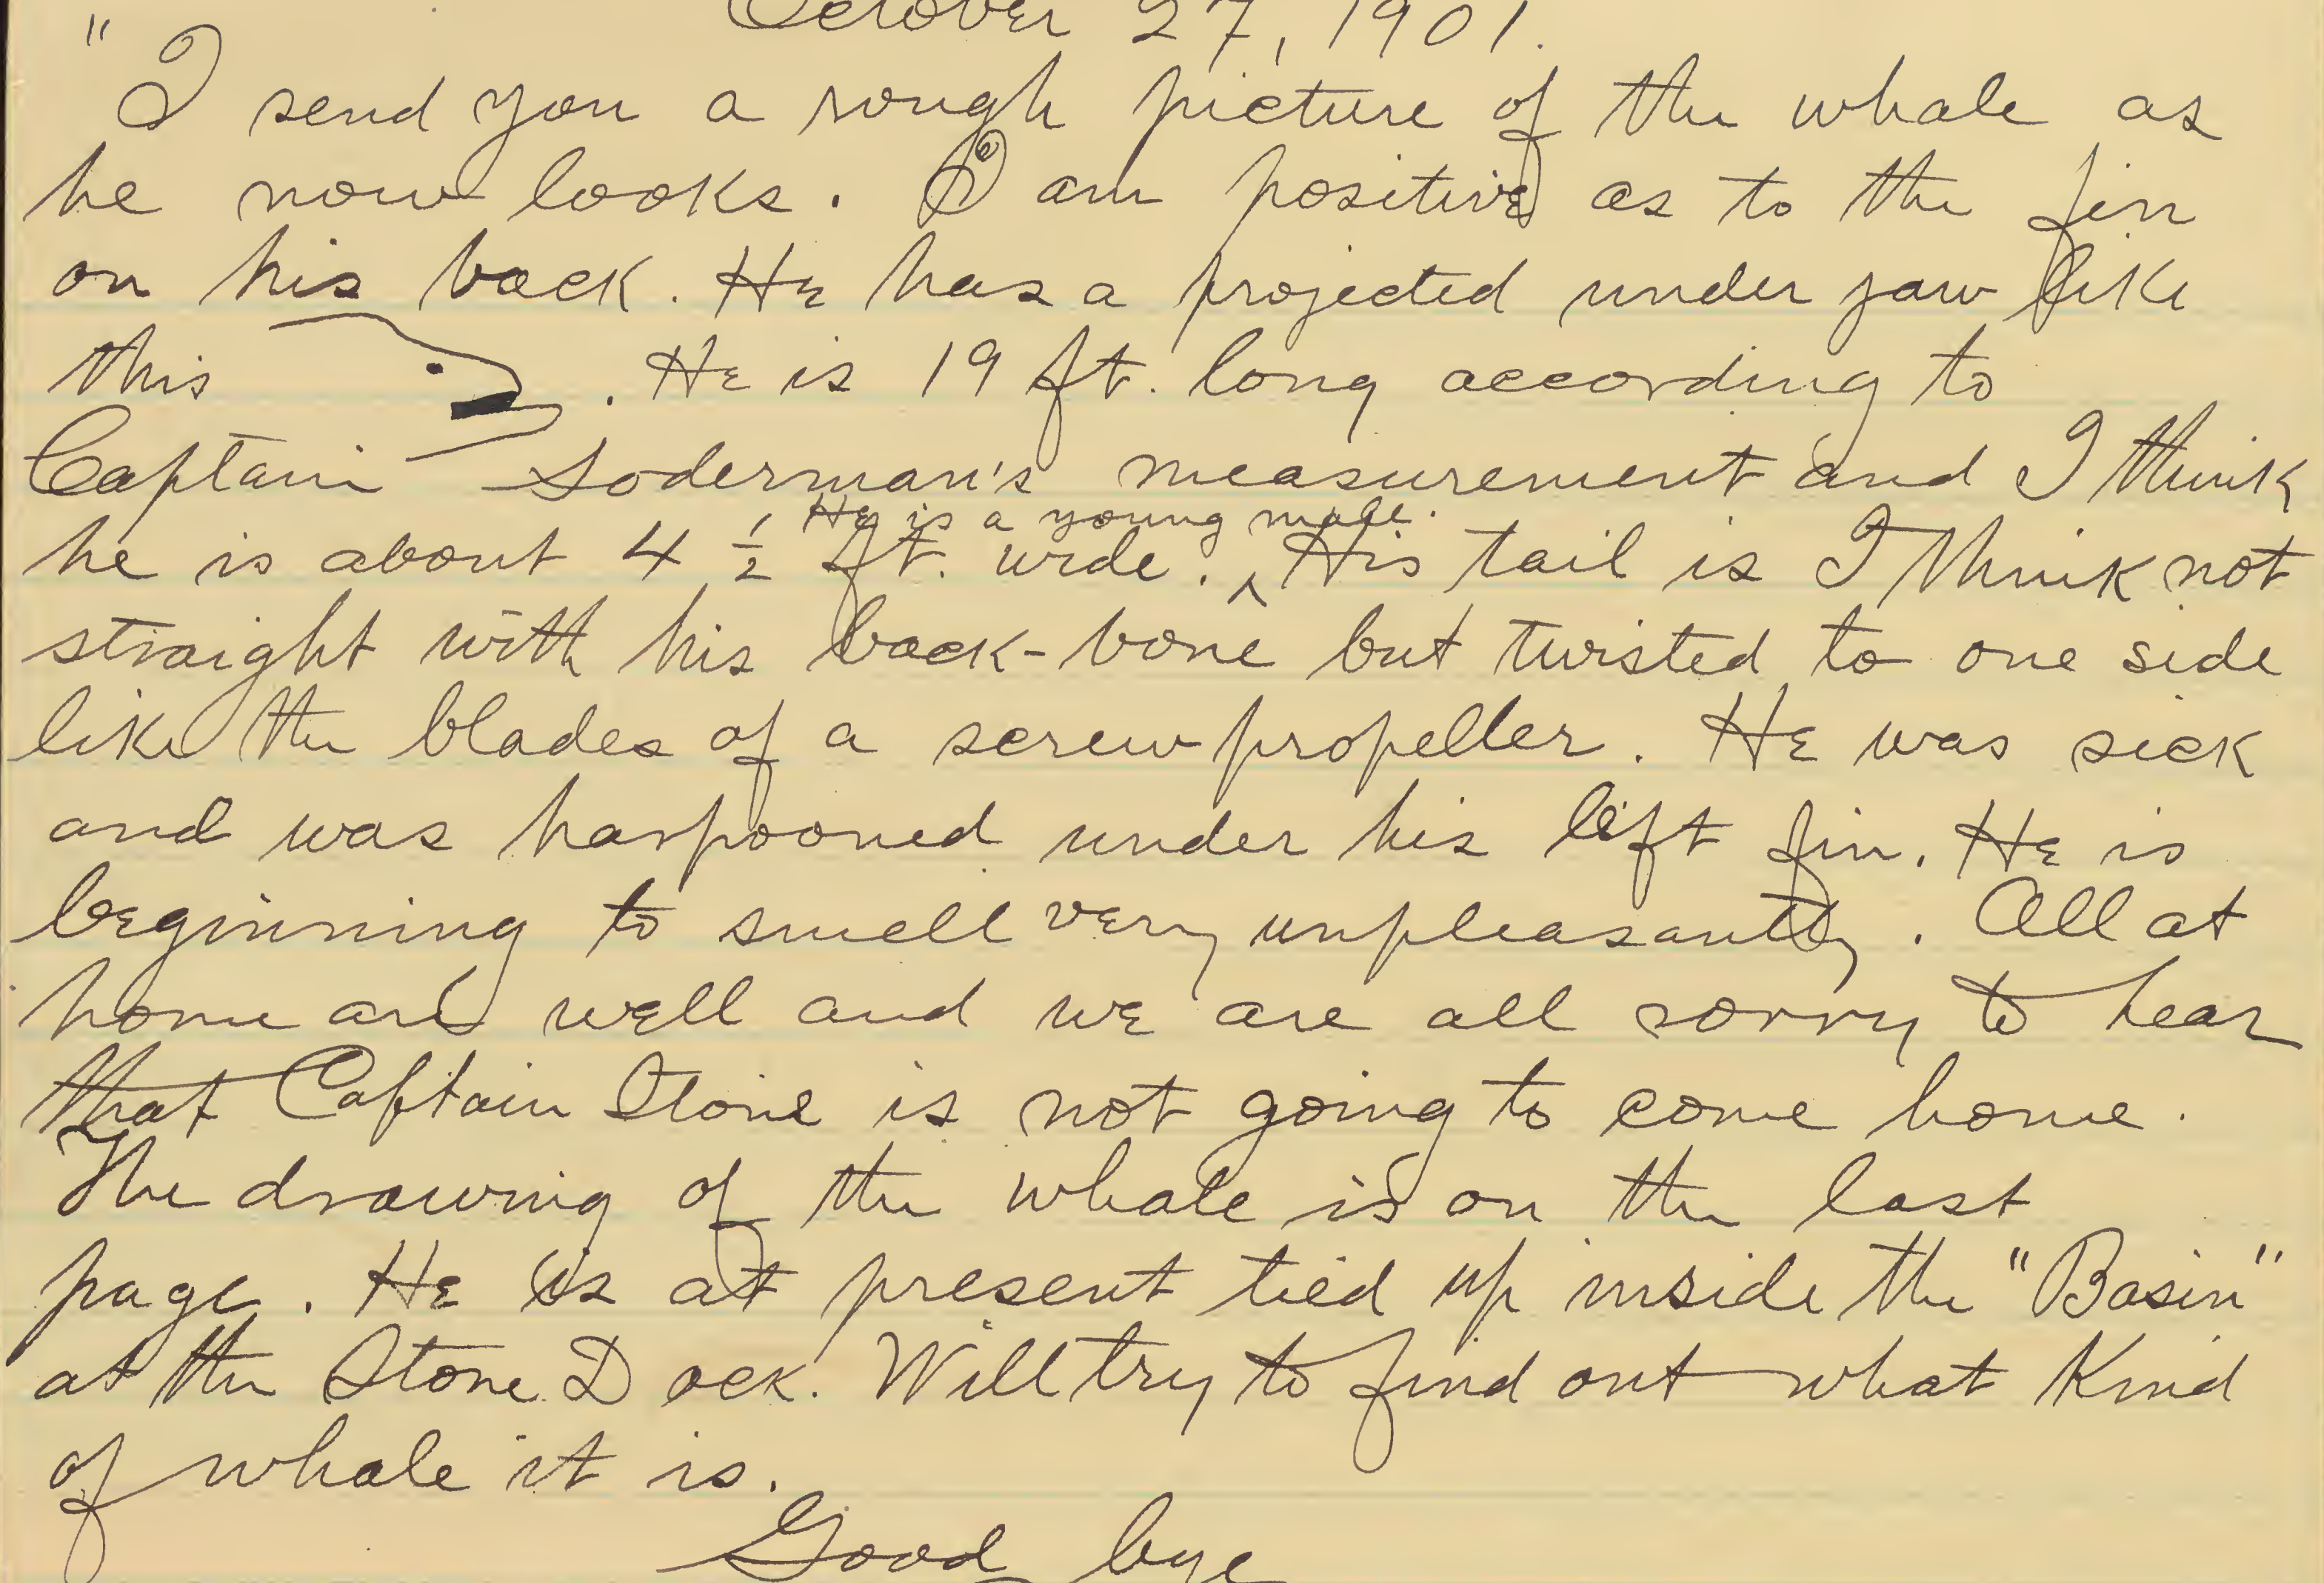 October 27, 1901.
"I send you a rough picture of the whale as
he now looks. I am positive as to the fin
on his back. He has a projected under jaw like
this . He is 19 ft. long according to
Captain Soderman's measurement and I think
He is a young male.
he is about 4 1/2 ft. wide. ^ His tail is I think not
straight with his back-bone but twisted to one side
like the blades of a screw propeller. He was sick
and was harpooned under his left fin. He is
beginning to smell very unpleasantly. All at
home are well and we are all sorry to hear
that Captain Stone is not going to come home.
The drawing of the whale is on the last
page. He is at present tied up inside the "Basin"
at the Stone Dock. Will try to find out what kind
of whale it is.
Good bye